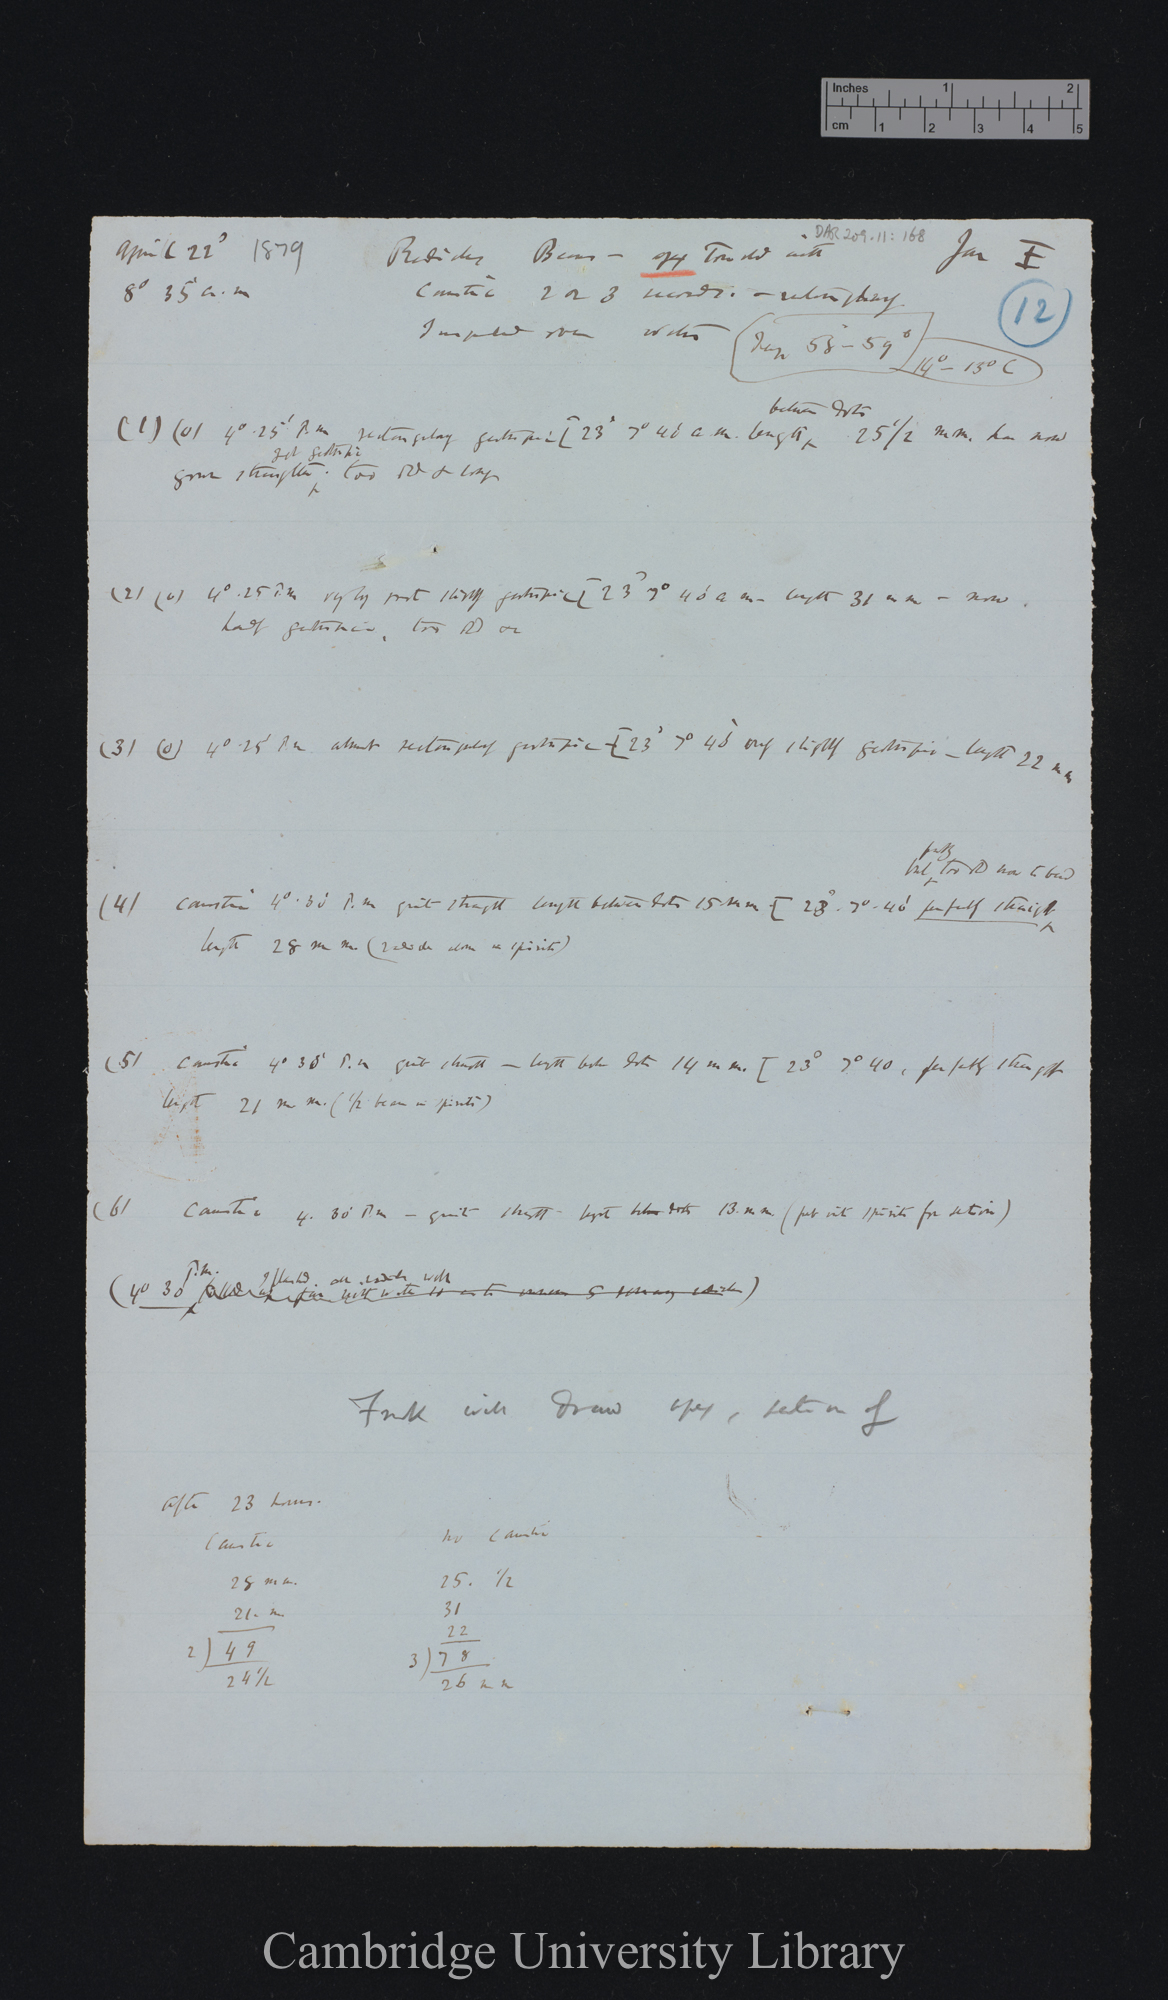 Inches 1 2
cm 1 2 3 4 5
DAR 209.11: 168
April 22d 1879 Radicles Beans — apex touched with Jar I
8° 35' a.m caustic 2 or 3 seconds. —
12
Suspended over water Temp 58°–59°
14°–15° C
between dots
(1) (0) 4° 25' P.m rectangularly geotropic [23d 7° 40' a.m. length 25 1/2 m.m. has now
not geotropic
grown straight; too old & long
(2) (0) 4° 25' P.m slightly geotropic [23d 7° 40' a m — length 31 m m — now
half geotropic, too old
(3) (0) 4° 25' P.m almost rectangularly geotropic — [23d 7° 40' only slightly geotropic — length 22 m m
perfectly
but too old now to bend
(4) caustic 4° 30' P.m quite straight length between dots 15 m.m. [23d. 7° 40' perfectly straight
length 28 m m. (in spirits)
(5) Caustic 4° 30' P.m quite straight — length betw dots 14 m m. [23d 7° 40, perfectly straight
length 21 m m. (1/2 bean in spirits)
(6) Caustic 4. 30' P.m — quite straight — length dots 13. m m. (put into spirits for section)
P.m.
(4° 30'
Frank will draw apex, section of
After 23 hours.
Caustic no caustic
28 m m. 25. 1/2
21. m 31
22
2) 49 3) 78
24 1/2 26 m m
Cambridge University Library